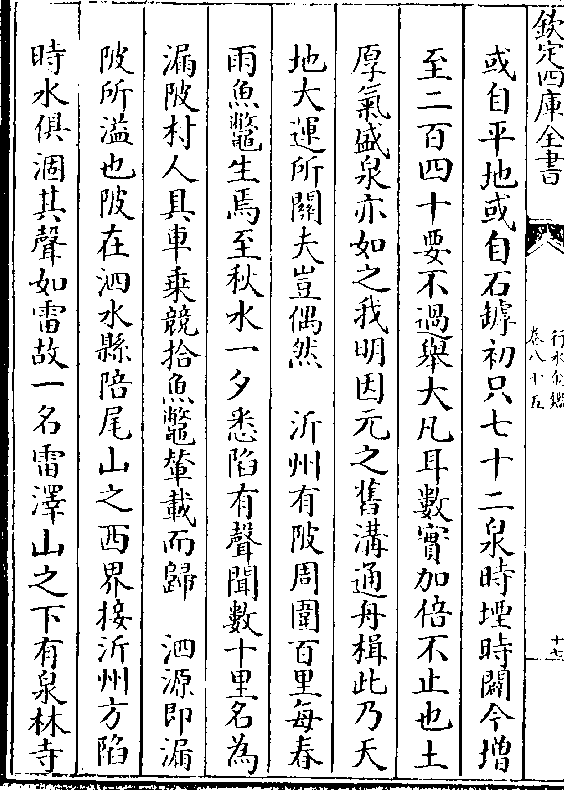 欽定四庫全書
行水金鑑
卷八十五
十七
或自平地或自石罅初只七十二泉時堙時闢今增
至二百四十要不過舉大凡耳數實加倍不止也土
厚氣盛泉亦如之我明因元之舊溝通舟楫此乃天
地大運所關夫豈偶然　沂州有陂周圍百里每春
雨魚鼈生焉至秋水一夕悉陷有聲聞數十里名為
漏陂村人具車乘競拾魚鼈輦載而歸　泗源即漏
陂所溢也陂在泗水縣陪尾山之西界接沂州方陷
時水俱涸其聲如雷故一名雷澤山之下有泉林寺